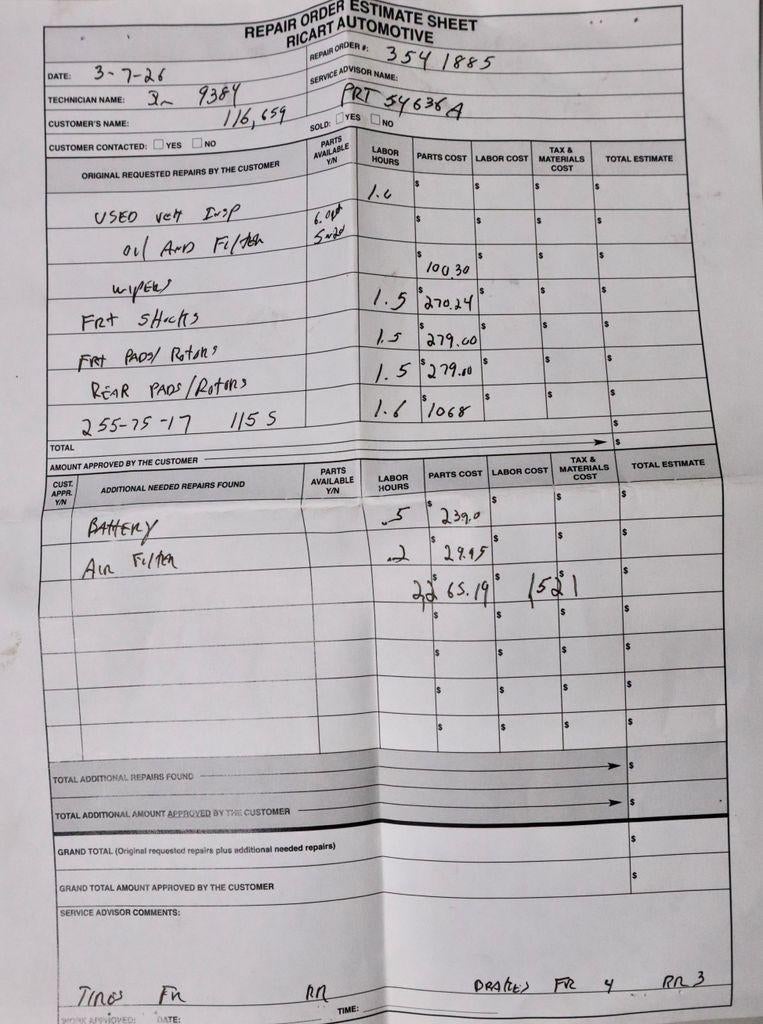 REPAIR ORDER ESTIMATE SHEET
RICART AUTOMOTIVE
DATE: 3-7-26 REPAIR ORDER #: 3541885
TECHNICIAN NAME: 9384 SERVICE ADVISOR NAME:
CUSTOMER'S NAME: 116,659 PRT 54636A
CUSTOMER CONTACTED: YES NO SOLD: YES NO
ORIGINAL REQUESTED REPAIRS BY THE CUSTOMER PARTS AVAILABLE Y/N LABOR HOURS PARTS COST LABOR COST TAX & MATERIALS COST TOTAL ESTIMATE
USED VEH INSP 1.0 $ $ $ $
OIL AND FILTER 6.0qt 5W20 $ $ $ $
WIPERS $ 100.30 $ $ $
FRT SHOCKS 1.5 $ 270.24 $ $ $
FRT PADS/ROTORS 1.5 $ 279.00 $ $ $
REAR PADS/ROTORS 1.5 $ 279.00 $ $ $
255-75-17 115 S 1.6 $ 1068 $ $ $
TOTAL $
AMOUNT APPROVED BY THE CUSTOMER $
CUST. APPR. Y/N ADDITIONAL NEEDED REPAIRS FOUND PARTS AVAILABLE Y/N LABOR HOURS PARTS COST LABOR COST TAX & MATERIALS COST TOTAL ESTIMATE
BATTERY .5 $ 239.0 $ $ $
AIR FILTER .2 $ 29.95 $ $ $
$ 2265.19 $ 1521 $ $
$ $ $ $
$ $ $ $
$ $ $ $
$ $ $ $
TOTAL ADDITIONAL REPAIRS FOUND $
TOTAL ADDITIONAL AMOUNT APPROVED BY THE CUSTOMER $
GRAND TOTAL (Original requested repairs plus additional needed repairs) $
GRAND TOTAL AMOUNT APPROVED BY THE CUSTOMER $
SERVICE ADVISOR COMMENTS:
TIRES FR RR BRAKES FR 4 RR 3
WORK APPROVED: DATE: TIME: